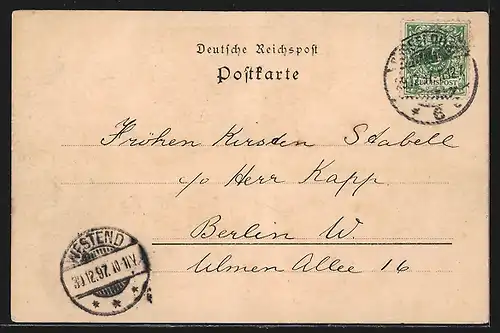 Deutsche Reichspost
Postkarte
Fröhen Kirsten Stabell
p/o Herr Kapp.
Berlin W.
Ulmen Allee 16
WESTEND
30.12.97.10-11V.
* * *
* 6